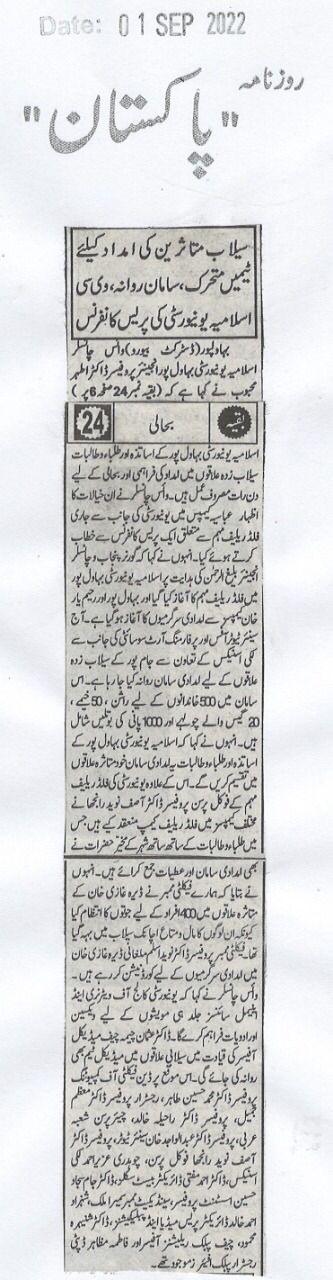 Date: 01 SEP 2022
روزنامہ
"پاکستان"
سیلاب متاثرین کی امداد کیلئے
ٹیمیں متحرک، سامان روانہ، وی سی
اسلامیہ یونیورسٹی کی پریس کانفرنس
بہاولپور (ڈسٹرکٹ بیورو) وائس چانسلر
اسلامیہ یونیورسٹی بہاول پور انجینئر پروفیسر ڈاکٹر اطہر
محبوب نے کہا ہے کہ (بقیہ نمبر 24 صفحہ 6 پر)
بقیہ
بحالی
24
اسلامیہ یونیورسٹی بہاول پور کے اساتذہ اور طلباء و طالبات
سیلاب زدہ علاقوں میں امداد کی فراہمی اور بحالی کے لیے
دن رات مصروف عمل ہیں۔ وائس چانسلر نے ان خیالات کا
اظہار عباسیہ کیمپس میں یونیورسٹی کی جانب سے جاری
فلڈ ریلیف مہم سے متعلق ایک پریس کانفرنس سے خطاب
کرتے ہوئے کیا۔ انہوں نے کہا کہ گورنر پنجاب و چانسلر
انجینئر بلیغ الرحمن کی ہدایت پر اسلامیہ یونیورسٹی بہاول پور
میں فلڈ ریلیف مہم کا آغاز کیا گیا اور بہاول پور اور رحیم یار
خان کیمپسز سے امدادی سرگرمیوں کا آغاز ہو گیا ہے۔ آج
سینئر ٹیوٹر آفس اور پرفارمنگ آرٹ سوسائٹی کی جانب سے
لکی اسٹیکس کے تعاون سے جام پور کے سیلاب زدہ
علاقوں کے لیے امدادی سامان روانہ کیا جا رہا ہے۔ اس
سامان میں 500 خاندانوں کے لیے راشن، 50 خیمے،
20 گیس والے چولہے اور 1000 پانی کی بوتلیں شامل
ہیں۔ انہوں نے کہا کہ اسلامیہ یونیورسٹی بہاول پور کے
طلباء و طالبات یہ امدادی سامان خود متاثرہ علاقوں
میں تقسیم کریں گے۔ اس کے علاوہ یونیورسٹی کی فلڈ ریلیف
مہم کے فوکل پرسن پروفیسر ڈاکٹر آصف نوید رانجھا نے
مختلف کیمپسز میں فلڈ ریلیف کیمپ منعقد کیے ہیں جس
میں طلباء و طالبات کے ساتھ ساتھ شہر کے مخیر حضرات نے
بھی امدادی سامان اور عطیات جمع کرائے ہیں۔ انہوں
نے بتایا کہ ہمارے فیکلٹی ممبر نے ڈیرہ غازی خان کے
متاثرہ علاقوں میں 400 افراد کے لیے جوتوں کا انتظام کیا
کیونکہ ان لوگوں کا مال و متاع اچانک سیلاب میں بہہ گیا
تھا۔ فیکلٹی ممبر پروفیسر ڈاکٹر نوید اسلم ملغانی ڈیرہ غازی خان
میں امدادی سرگرمیوں کے لیے کورڈینیشن کر رہے ہیں۔
وائس چانسلر نے کہا کہ یونیورسٹی کالج آف ویٹرنری اینڈ
اینیمل سائنسز جلد ہی مویشیوں کے لیے ویکسین
اور ادویات فراہم کرے گا۔ ڈاکٹر عثمان چیمہ چیف میڈیکل
آفیسر کی قیادت میں سیلابی علاقوں میں میڈیکل ٹیم بھی
روانہ کی جائے گی۔ اس موقع پر ڈین فیکلٹی آف کمپیوٹنگ
پروفیسر ڈاکٹر محمد حسین طاہر، رجسٹرار پروفیسر ڈاکٹر معظم
جمیل، پروفیسر ڈاکٹر راحیلہ خالد، چیئرپرسن شعبہ
عربی، پروفیسر ڈاکٹر عبدالواحد خان سینئر ٹیوٹر، پروفیسر ڈاکٹر
آصف نوید رانجھا فوکل پرسن، چوہدری عزیر احمد لکی
اسٹیکس، ڈاکٹر احمد مفتی ڈائریکٹر بیسٹ سکلز، ڈاکٹر جام سجاد
حسین اسسٹنٹ پروفیسر، سینڈیکیٹ ممبر سمیرا ملک، شہزاد
احمد خالد ڈائریکٹر پریس میڈیا اینڈ پبلیکیشنز، ڈاکٹر شہزادہ
محمود، چیف پبلک ریلیشنز آفیسر اور فاطمہ مظاہر ڈپٹی
رجسٹرار پبلک افیئرز موجود تھے۔